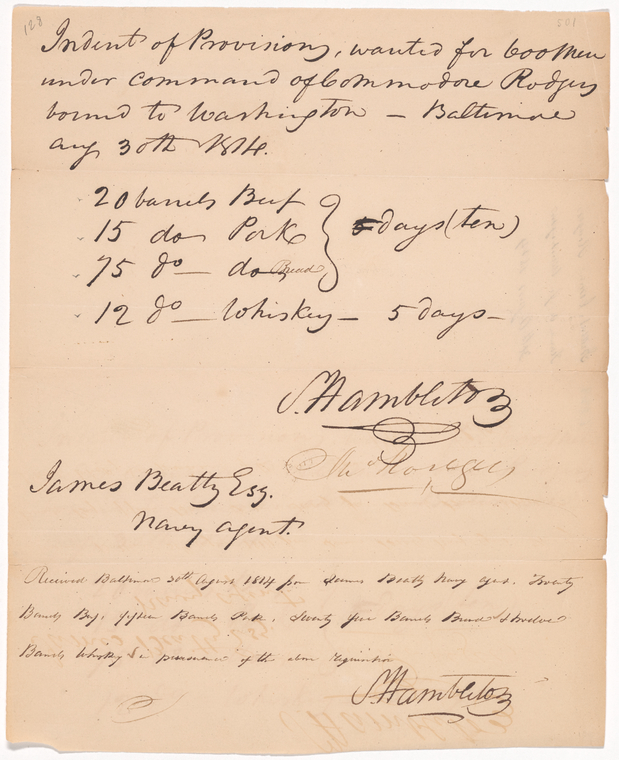 128
501
Indent of Provisions, wanted for 600 Men
under command of Commodore Rodgers
bound to Washington – Baltimore
Aug 30th 1814.
20 barrels Beef
15 do Pork
days (ten)
75 do – do Bread
12 do – Whiskey – 5 days –
S. Hambleton
Jno Rodgers
James Beatty Esq.
Navy Agent.
Received Baltimore 30th August 1814 from James Beatty Navy Agent. Twenty
Barrels Beef, fifteen Barrels Pork, Seventy five Barrels Bread & twelve
Barrels Whiskey in pursuance of the above requisition
S. Hambleton